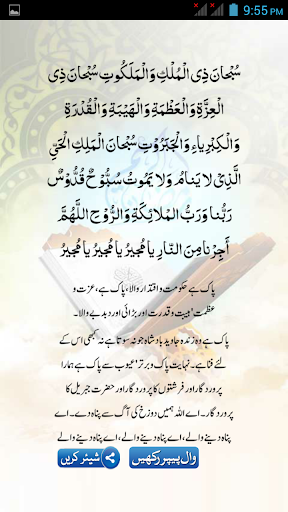 9:55 PM
سُبْحَانَ ذِی الْمُلْكِ وَالْمَلَكُوتِ سُبْحَانَ ذِی
الْعِزَّةِ وَالْعَظَمَةِ وَالْهَيْبَةِ وَالْقُدْرَةِ
وَالْكِبْرِيَاءِ وَالْجَبَرُوْتِ سُبْحَانَ الْمَلِكِ الْحَيِّ
الَّذِیْ لَا يَنَامُ وَلَا يَمُوتُ سُبُّوْحٌ قُدُّوْسٌ
رَبُّنَا وَرَبُّ الْمَلَائِكَةِ وَالرُّوْحِ اللَّهُمَّ
أَجِرْنَا مِنَ النَّارِ يَا مُجِيْرُ يَا مُجِيْرُ يَا مُجِيْرُ
پاک ہے حکومت و اقتدار والا، پاک ہے، عزت و
عظمت ہیبت و قدرت اور بڑائی اور دبدبے والا۔
پاک ہے وہ زندہ جاوید بادشاہ جو نہ سوتا ہے نہ کبھی اس کے
لئے فنا ہے۔ نہایت پاک و برتر، عیوب سے پاک ہے ہمارا
پروردگار اور فرشتوں کا پروردگار اور حضرت جبریل کا
پروردگار۔ اے اللہ ہمیں دوزخ کی آگ سے پناہ دے۔ اے
پناہ دینے والے، اے پناہ دینے والے، اے پناہ دینے والے
وال پیپر رکھیں
شیئر کریں